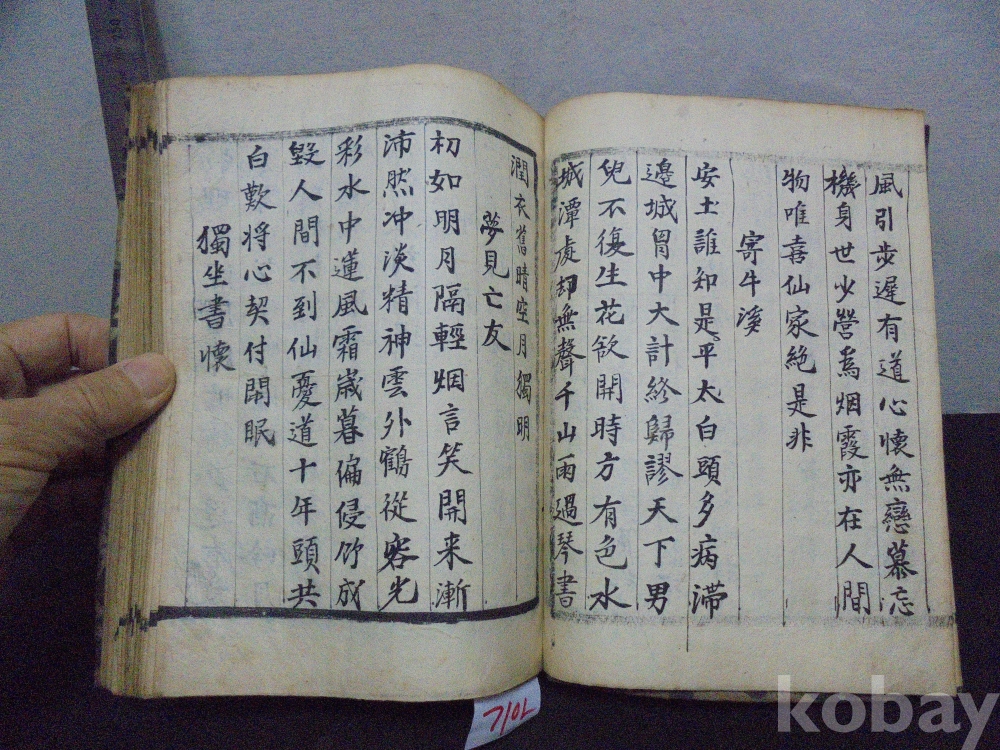 風引步遲有道心懷無戀慕忘
機身世少營為烟霞亦在人間
物唯喜仙家絶是非
寄牛溪
安土誰知是太平白頭多病滯
邊城胷中大計終歸謬天下男
兒不復生花欲開時方有色水
城潭處却無聲千山雨過琴書
潤衣舊晴空月獨明
夢見亡友
初如明月隔輕烟言笑開来漸
沛然冲淡精神雲外鶴從容光
彩水中蓮風霜歲暮偏侵竹成
毀人間不到仙憂道十年頭共
白歎将心契付閒眠
獨坐書懷
기아
kobay